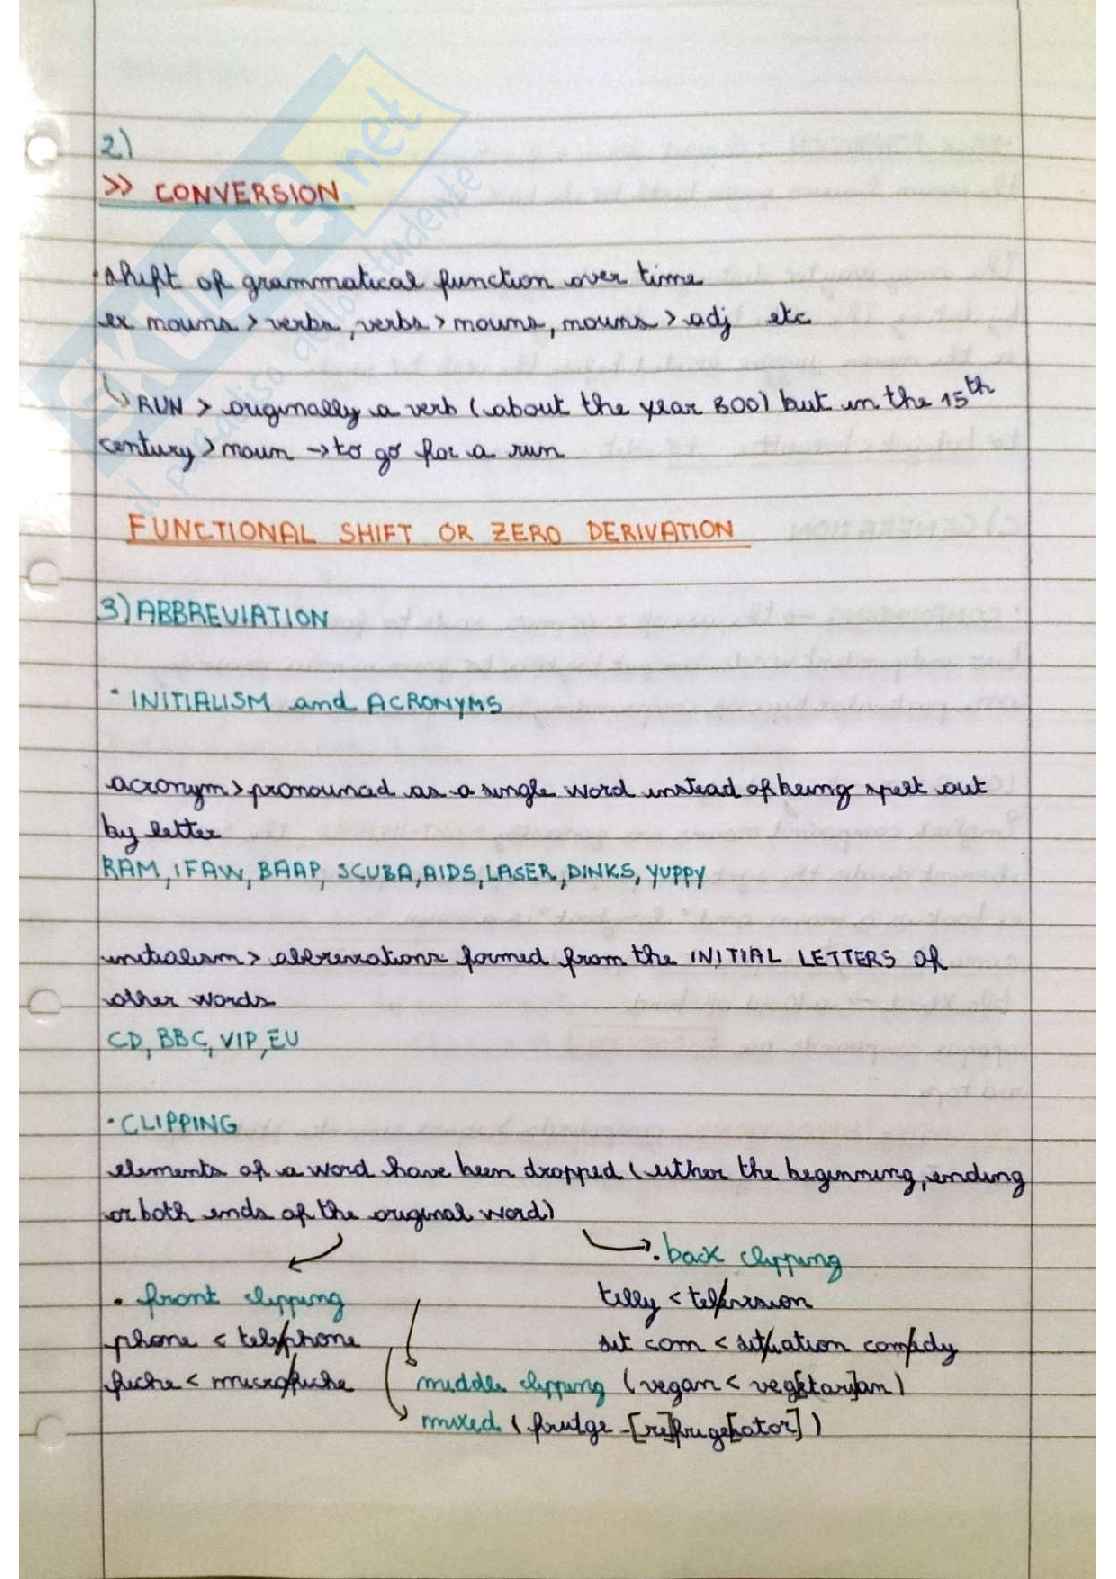 2)
>> CONVERSION
•shift of grammatical function over time
ex nouns > verbs, verbs > nouns, nouns > adj etc
↳ RUN > originally a verb (about the year 800) but in the 15th
century > noun → to go for a run
FUNCTIONAL SHIFT OR ZERO DERIVATION
3) ABBREVIATION
• INITIALISM and ACRONYMS
acronym > pronounced as a single word instead of being spelt out
by letter
RAM, IFAW, BAAP, SCUBA, AIDS, LASER, DINKS, YUPPY
initialism > abbreviations formed from the INITIAL LETTERS of
other words
CD, BBC, VIP, EU
• CLIPPING
elements of a word have been dropped (either the beginning, ending
or both ends of the original word)
• back clipping
• front clipping
telly < tel/evision
phone < tele/phone
sit com < sit/uation com/edy
fiche < micro/fiche
middle clipping (vegan < veg[etari]an)
mixed (fridge - [re]frige[rator])
SKUOLA.net